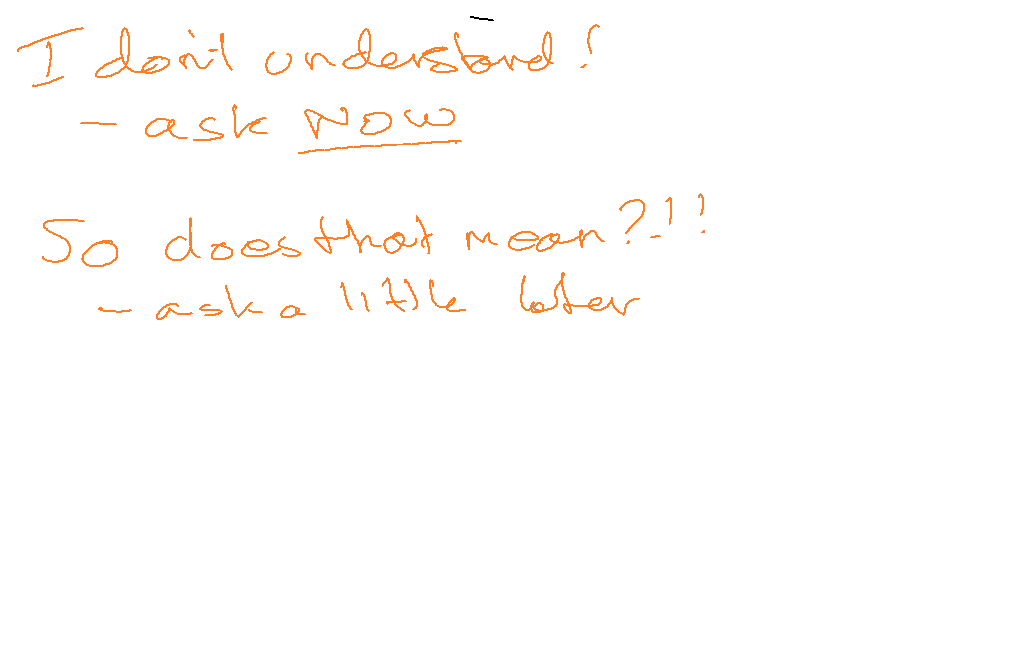 I don't understand!
- ask NOW
So does that mean?!!
- ask a little later